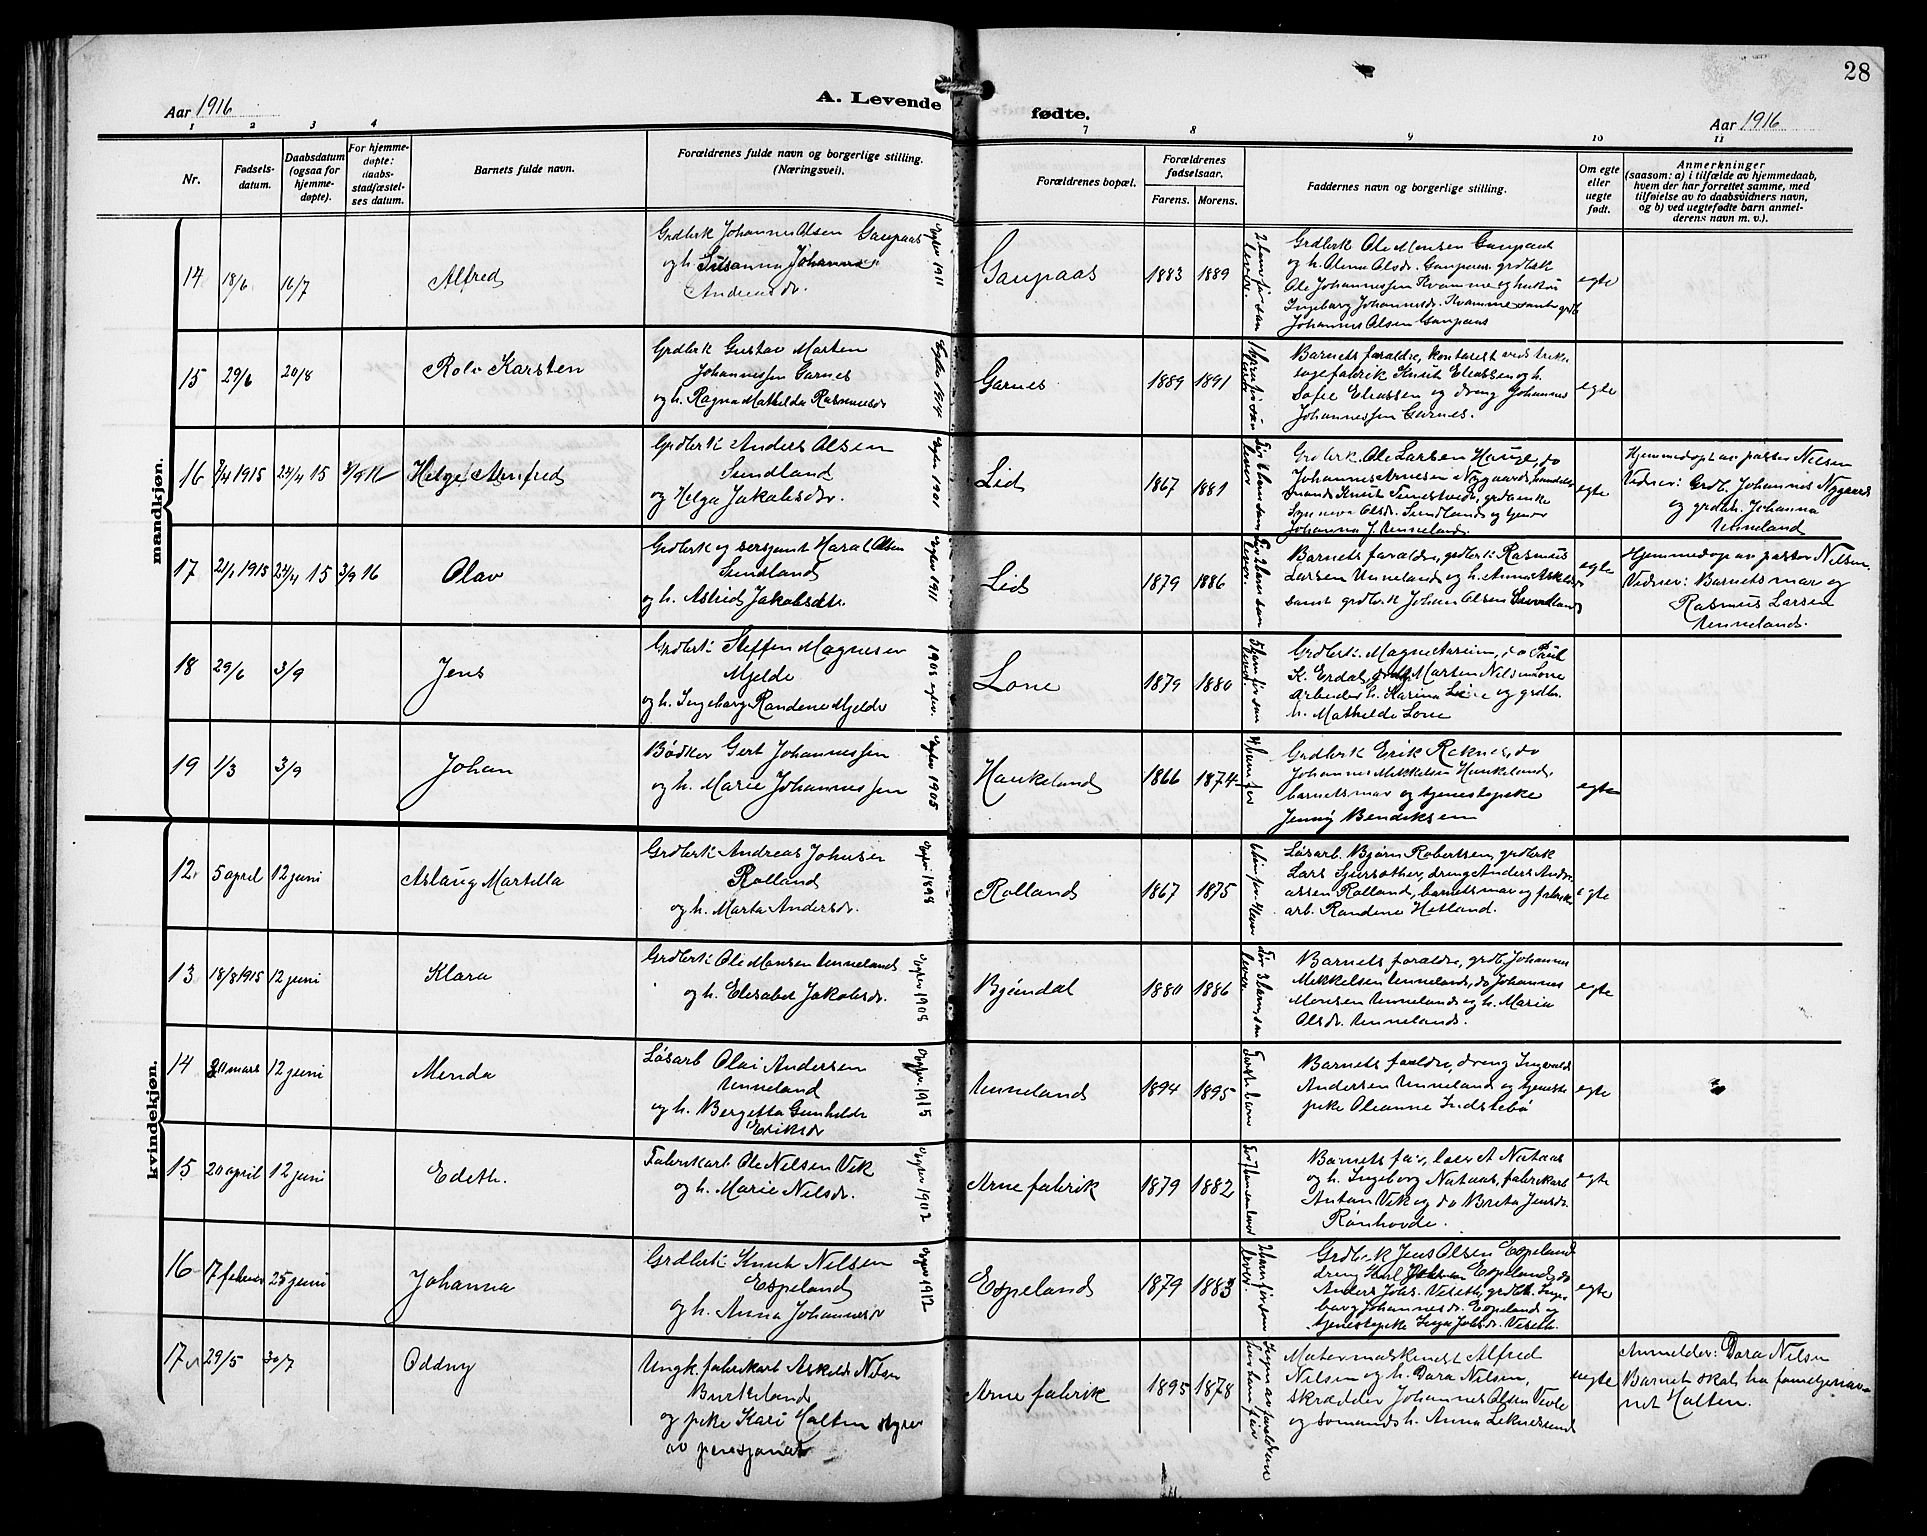 28
Aar 1916
A. Levende
fødte.
Aar 1916
1 2 3 4 7 8 9 10 11
Nr.
Fødsels-
datum.
Daabsdatum
(ogsaa for
hjemme-
døpte).
For hjemme-
døpte:
daabs-
stadfæstel-
ses datum.
Barnets fulde navn.
Forældrenes fulde navn og borgerlige stilling.
(Næringsvei).
Forældrenes bopæl.
Forældrenes
fødselsaar.
Farens. Morens.
Faddernes navn og borgerlige stilling.
Om egte
eller
uegte
født.
Anmerkninger
(saasom: a) i tilfælde av hjemmedaab,
hvem der har forrettet samme, med
tilføielse av to daabsvidners navn,
og b) ved uegtefødte barn anmel-
derens navn m. v.).
mandkjøn.
14 18/6 16/7 Alfred
Grdbrk Johannes Olsen Gaupaas
og h. Susanna Johanna
Andreasdr.
1911
Gaupaas 1883 1889
Grdbrk Ole Monsen Gaupaas
og h. Alma Olsdr. Gaupaas, grdbrk
Ole Johannessen Kvamme og
Ingeborg Johannesdr. Kvamme samt grdb
Johannes Olsen Gaupaas
egte
15 29/6 20/8 Rolv Karsten
Grdbrk Gustav Marten
Johannessen Garnes
og h. Ragna Mathilda Rasmusdr
1914
Garnes 1889 1891
Barnets forældre, kontorist ved triko
tagefabrik Knut Eliassen og h.
Sofie Eliassen og dreng Johannes
Johannessen Garnes.
egte
16 7/4 1915 24/4 15 3/9 16 Helge Arnfred
Grdbrk Anders Olsen
Sundland
og Helga Jakobsdr.
1901
Lid 1867 1881
Grdbrk. Ole Larsen Hauge, do
Johannes Arnesen Nygaard,
Knut grdenke
Synneva Olsdr. Sundland og tjener
Johanna J. Unneland.
egte
Hjemmedøpt av pastor Nilsen
Vidner: Grdb. Johannes Nygaard
og grdbk. Johanna
Unneland
17 21/1 1915 24/4 15 3/9 16 Olav
Grdbrk og sersjant Haral Olsen
Sundland
og h. Astrid Jakobsdtr.
1911
Lid 1879 1886
Barnets forældre, grdbrk Rasmus
Larsen Unneland og h. Anna Askelsdr
samt grdbrk Johan Olsen Sundland
egte
Hjemmedøp av pastor Nilsen.
Vidner: Barnets mor og
Rasmus Larsen
Unneland.
18 29/6 3/9 Jens
Grdbrk Steffen Magnesen
Mjelde
og h. Ingeborg Randene Mjelde
1903
Lone 1879 1880
Grdbrk. Magne do Paul
K. Erdal, Marten Nilsen Lone
arbeider h. Karina Lone og grdbr.
h. Mathilde Lone
19 1/3 3/9 Johan
Bødker Gert Johannessen
og h. Marie Johannessen
1905
Haukeland 1866 1874
Grdbrk Erik Reknes, do
Johannes Mikkelsen Haukeland,
barnets mor og tjenestepike
Jenny Bendiksen
egte
kvindekjøn.
12 5 april 12 juni Aslaug Martella
Grdbrk Andreas Johnsen
Rolland
og h. Marta Andersdr.
1898
Rolland 1867 1875
Løsarb. Bjørn Robertsen, grdbrk
Lars dreng Anders Andre-
assen Rolland, barnets mor og fabrik
arb. Randene Hetland.
egte
13 18/8 1915 12 juni Klara
Grdbrk Ole Monsen Unneland
og h. Elisabet Jakobsdr.
1908
Bjøndal 1880 1886
Barnets forældre, grdb. Johannes
Mikkelsen Unneland, do Johannes
Monsen Unneland og h. Maria
Olsdr. Unneland.
egte
14 20 mars 12 juni Menda
Løsarb Olai Andersen
Unneland
og h. Bergitta Gunhilde
Eriksdr
1915
Unneland 1894 1895
Barnets forældre, dreng Ingvald
Andersen Unneland og tjeneste
pike Oleanne Indstebø
egte
15 20 april 12 juni Edeth.
Fabrikarb Ole Nilsen Vik
og h. Marie Nilsdr.
1902
Arne fabrik 1879 1882
Barnets far, A Nataas
og h. Ingeborg Nataas, fabrikarb
Anton Vik og do Brita Jensdr.
Rønhovde.
egte
16 7 februar 25 juni Johanna
Grdbrk Knut Nilsen
Espeland
og h. Anna Johannesdr
1912
Espeland 1879 1883
Grdbrk Jens Olsen Espeland
dreng Karl Johan Espeland, do
Anders Johs. Viseth, grdbk. Inge-
borg Johannesdr. Espeland og
tjenestepike Inga Johsdr. Viseth.
egte
17 29/5 30/7 Oddny
Ungk. fabrikarb Askild Nilsen
Birkeland
og pike Kari Holten styrer
av pensjonat
Arne fabrik 1895 1878
Motormaskinist Alfred
Nilsen og h. Dora Nilsen,
skrædder Johannes Olsen Vevle
og sømands h. Anna Leknessund
uegte
Anmelder: Dora Nilsen
Barnet skal ha familjenav-
net Holten.